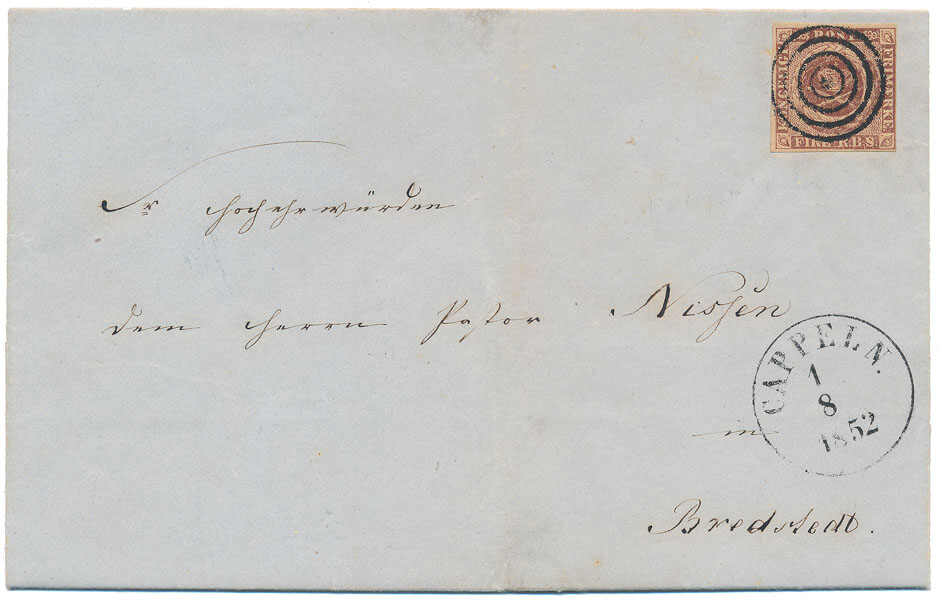 KONGELIGT POST FRIMÆRKE FIRE R.B.S.
Sr Hochehrwürden
dem Herrn Pastor Nissen
CAPPELN.
1
8
1852
in
Bredstedt.